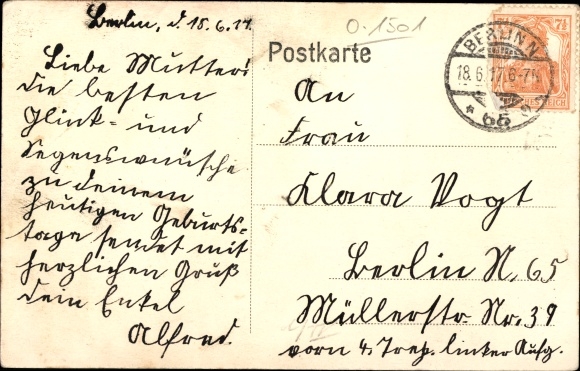 Berlin, d. 18.6.17.
Liebe Mutter!
die besten
Glück- und
Segenswünsche
zu deinem
heutigen Geburts-
tage sendet mit
herzlichen Gruß
dein Enkel
Alfred.
0.1501
Postkarte
BERLIN N
18.6.17.6-7N
* 65
7½
REICH
An
Frau
Klara Vogt
Berlin N. 65
Müllerstr. Nr. 39
vorn 4. Trep. linker Aufg.